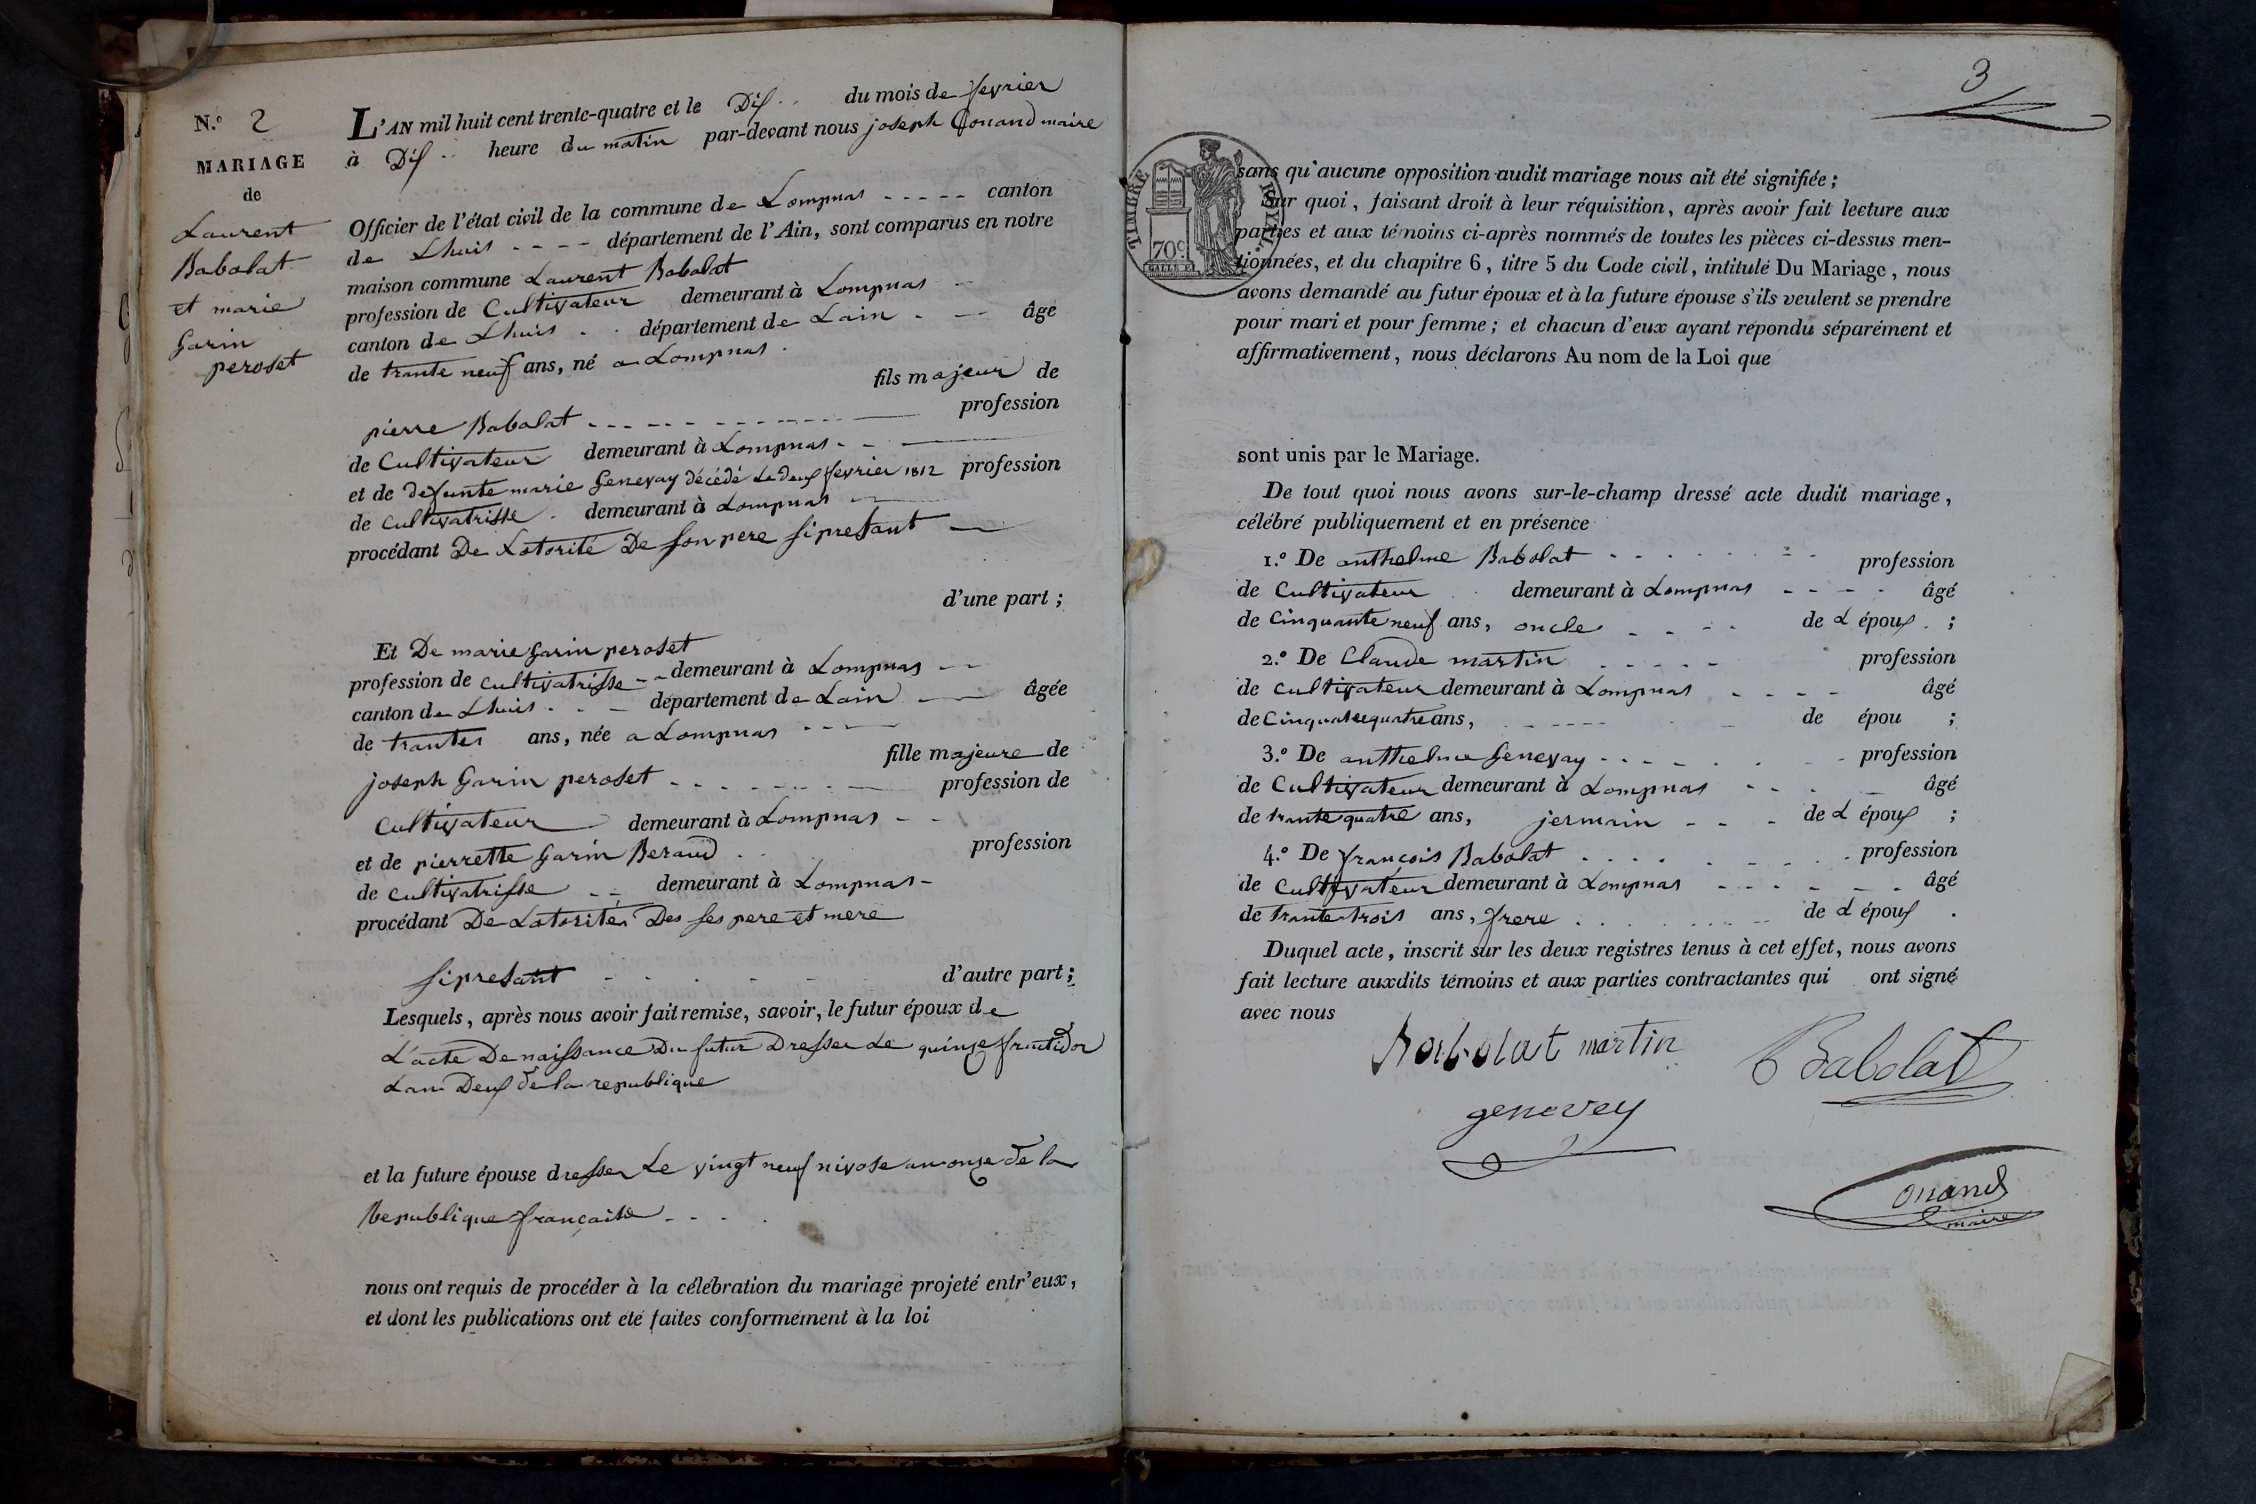 N.o 2
MARIAGE
de
Laurent
Babolat
et marie
Garin
peroset
L'AN mil huit cent trente-quatre et le Dix du mois de fevrier
à Dix heure du matin par-devant nous joseph Couand maire
Officier de l'état civil de la commune de Lompnas canton
de Lhuis département de l'Ain, sont comparus en notre
maison commune Laurent Babolat
profession de Cultivateur demeurant à Lompnas
canton de Lhuis département de Lain âge
de trante neuf ans, né a Lompnas
fils majeur de
pierre Babolat profession
de Cultivateur demeurant à Lompnas
et de defunte marie Genevay décédé Le deux fevrier 1812 profession
de cultivatrisse demeurant à Lompnas
procédant De Lotorité De son pere si presant
d'une part ;
Et De marie Garin peroset
profession de cultivatrisse demeurant à Lompnas
canton de Lhuis département de Lain âgée
de trantes ans, née a Lompnas
fille majeure de
joseph Garin peroset profession de
Cultivateur demeurant à Lompnas
et de pierrette Garin Beraud profession
de cultivatrisse demeurant à Lompnas
procédant De Latorités Des ses pere et mere
si presant d'autre part ;
Lesquels, après nous avoir fait remise, savoir, le futur époux de
L'acte De naissance Du futur Dresser Le quinze fructidor
Lan Deux de la republique
et la future épouse dresser Le vingt neuf nivose an onze de la
Republique française
nous ont requis de procéder à la célébration du mariage projeté entr'eux,
et dont les publications ont été faites conformément à la loi
3
TIMBRE ROYAL
70c.
sans qu'aucune opposition audit mariage nous ait été signifiée ;
Sur quoi, faisant droit à leur réquisition, après avoir fait lecture aux
parties et aux témoins ci-après nommés de toutes les pièces ci-dessus men-
tionnées, et du chapitre 6, titre 5 du Code civil, intitulé Du Mariage, nous
avons demandé au futur époux et à la future épouse s'ils veulent se prendre
pour mari et pour femme ; et chacun d'eux ayant répondu séparément et
affirmativement, nous déclarons Au nom de la Loi que
sont unis par le Mariage.
De tout quoi nous avons sur-le-champ dressé acte dudit mariage,
célébré publiquement et en présence
1.o De anthelme Babolat profession
de Cultivateur demeurant à Lompnas âgé
de Cinquante neuf ans, oncle de L époux ;
2.o De Claude martin profession
de cultivateur demeurant à Lompnas âgé
de Cinquate quatre ans, de épou ;
3.o De anthelme Genevay profession
de Cultivateur demeurant à Lompnas âgé
de trante quatre ans, jermain de L époux ;
4.o De françois Babolat profession
de Cultivateur demeurant à Lompnas âgé
de trante trois ans, frere de L époux .
Duquel acte, inscrit sur les deux registres tenus à cet effet, nous avons
fait lecture auxdits témoins et aux parties contractantes qui ont signé
avec nous
Babolat martin Babolat
genevey
Couand
maire